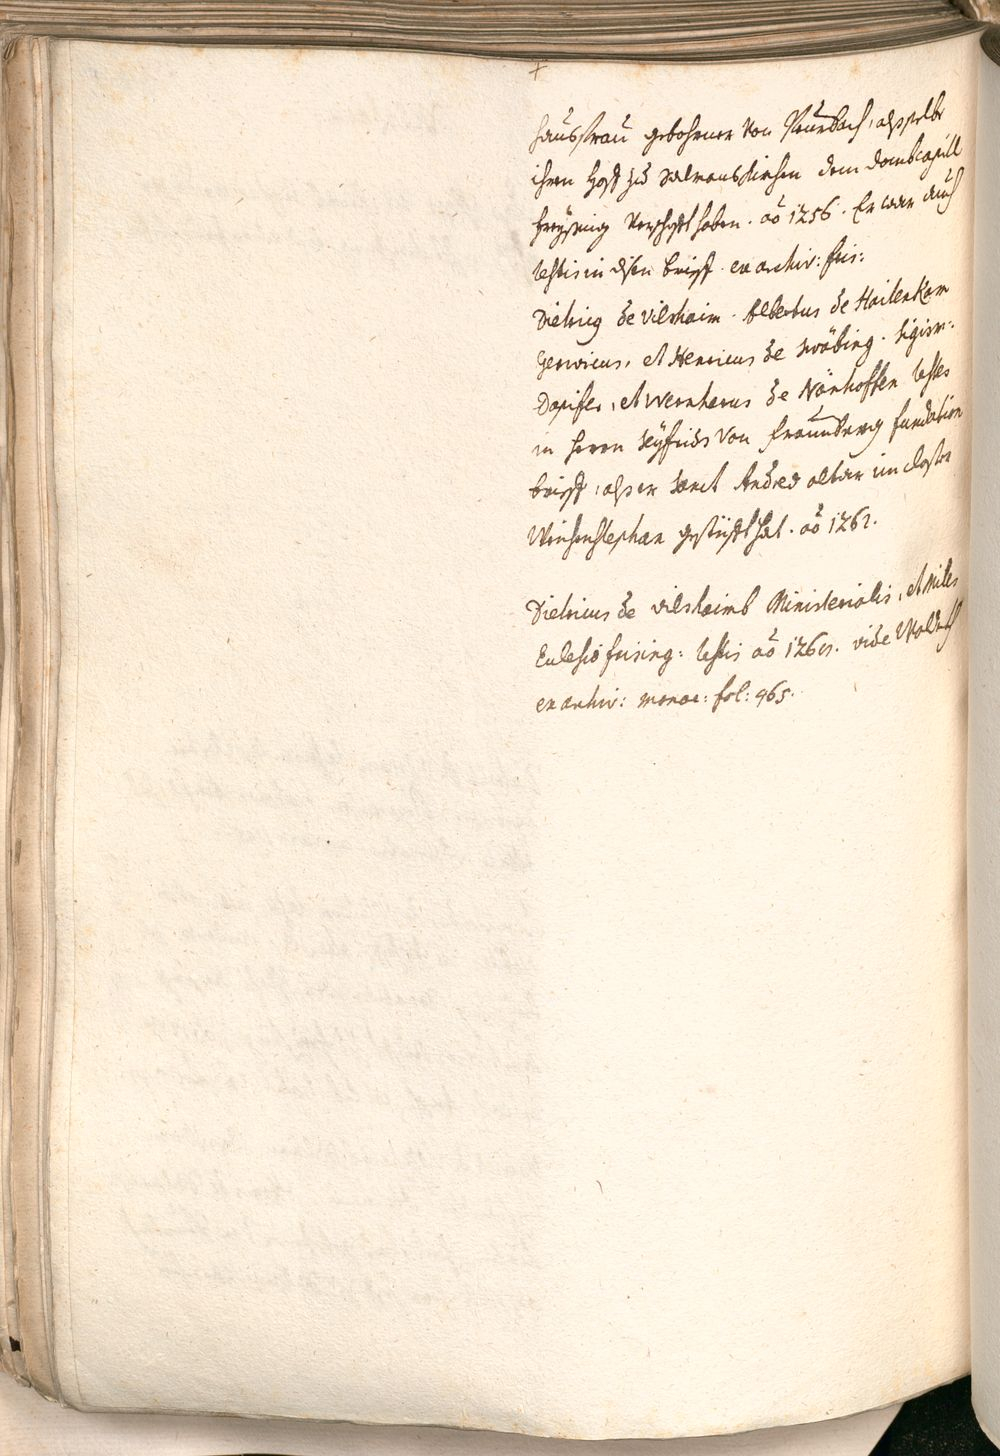 +
Hausfrau gebohrner von Baumbach, alß selbe
ihren Hoff zu Salmanskirchen dem Dombcapitl
Freÿsing verschafft haben. aõ 1256. Er war auch
testis in disen brieff. ex archiv: fris:
Dietrig de Vilshaim. Albertus de Haitenkam
Gerwicus, et Henricus de Swäbing. Sigism:
Dapifer, et Wernherus de Nänhoffen testes
in Herrn Seÿfrids von Fraunberg fundation
brieff, alß er Sanct Andreæ altar im closter
Weichenstephan gestüfft hat. aõ 1262.
Dietricus de Vilshaimb Ministerialis, et Miles
Eclesiæ frising: testis aõ 1260. vide
ex archiv: monac: fol: 465.